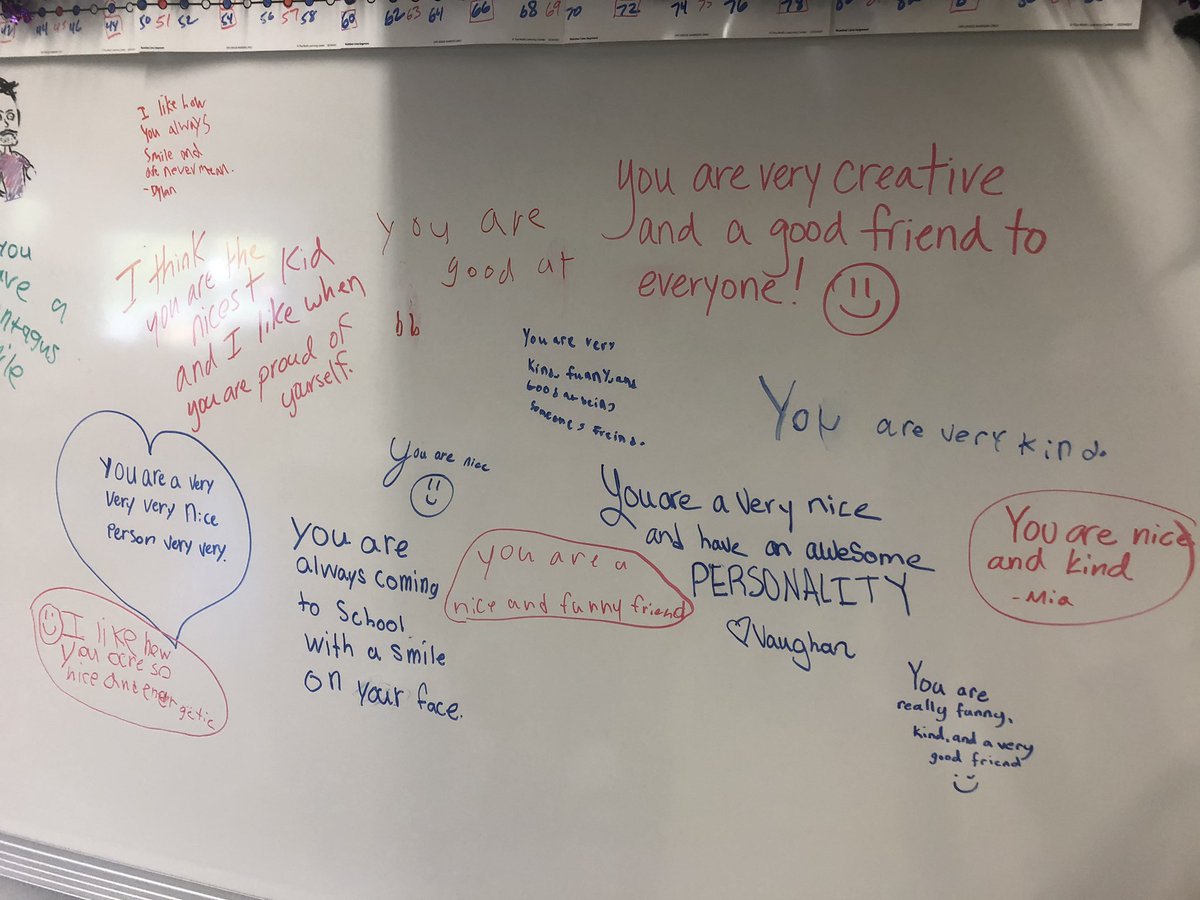 44 45 46 48 50 51 52 54 56 57 58 60 62 63 64 66 68 69 70 72 74 75 76 78
I like how
you always
smile and
are never mean.
-Dylan
you
are a
I think
you are the
nicest kid
and I like when
you are proud of
yourself.
you are
good at
bb
you are very creative
and a good friend to
everyone!
You are very
kind, funny, and
Good at being
someone's Freind.
You are very kind.
You are a very
very very nice
person very very.
You are nice
You are a very nice
and have an awesome
PERSONALITY
Vaughan
You are nice
and kind
-Mia
you are
always coming
to school
with a smile
on your face.
you are a
nice and funny friend
I like how
you are so
nice and energetic
You are
really funny,
kind, and a very
good friend